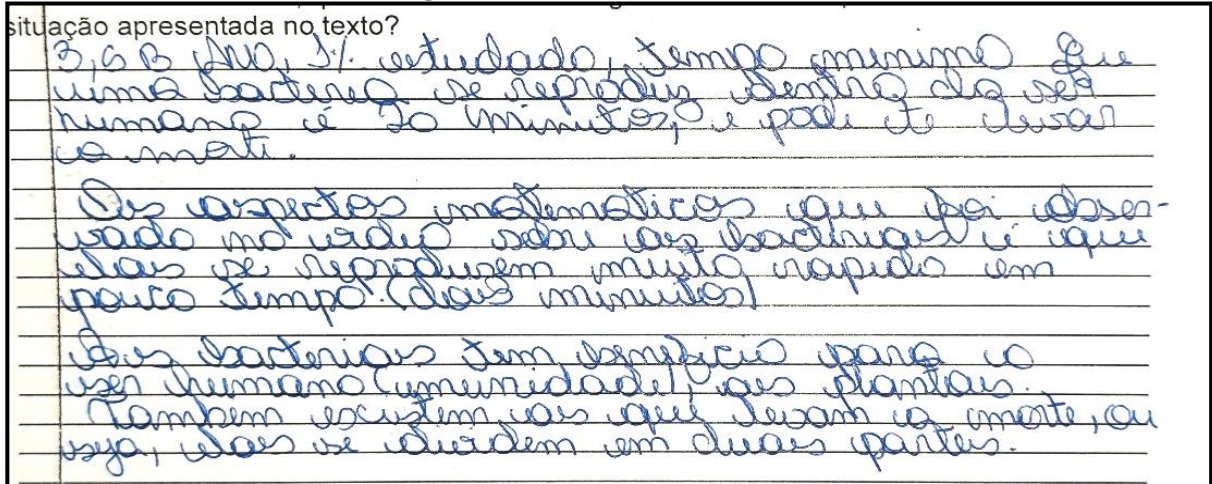 situação apresentada no texto?
3,6 B ANO, 1% estudado, tempo minimo que
uma bacteria se reproduz dentro do ser
humano é 20 minutos, e pode te levar
a morte.
Os aspectos matematicos que foi obser-
vado no vidio sobre as bacterias é que
elas se reproduzem muito rapido em
pouco tempo. (dois minutos)
As bacterias tem beneficio para o
ser humano (imunidade), as plantas.
Tambem existem as que levam a morte, ou
seja, elas se dividem em duas partes.